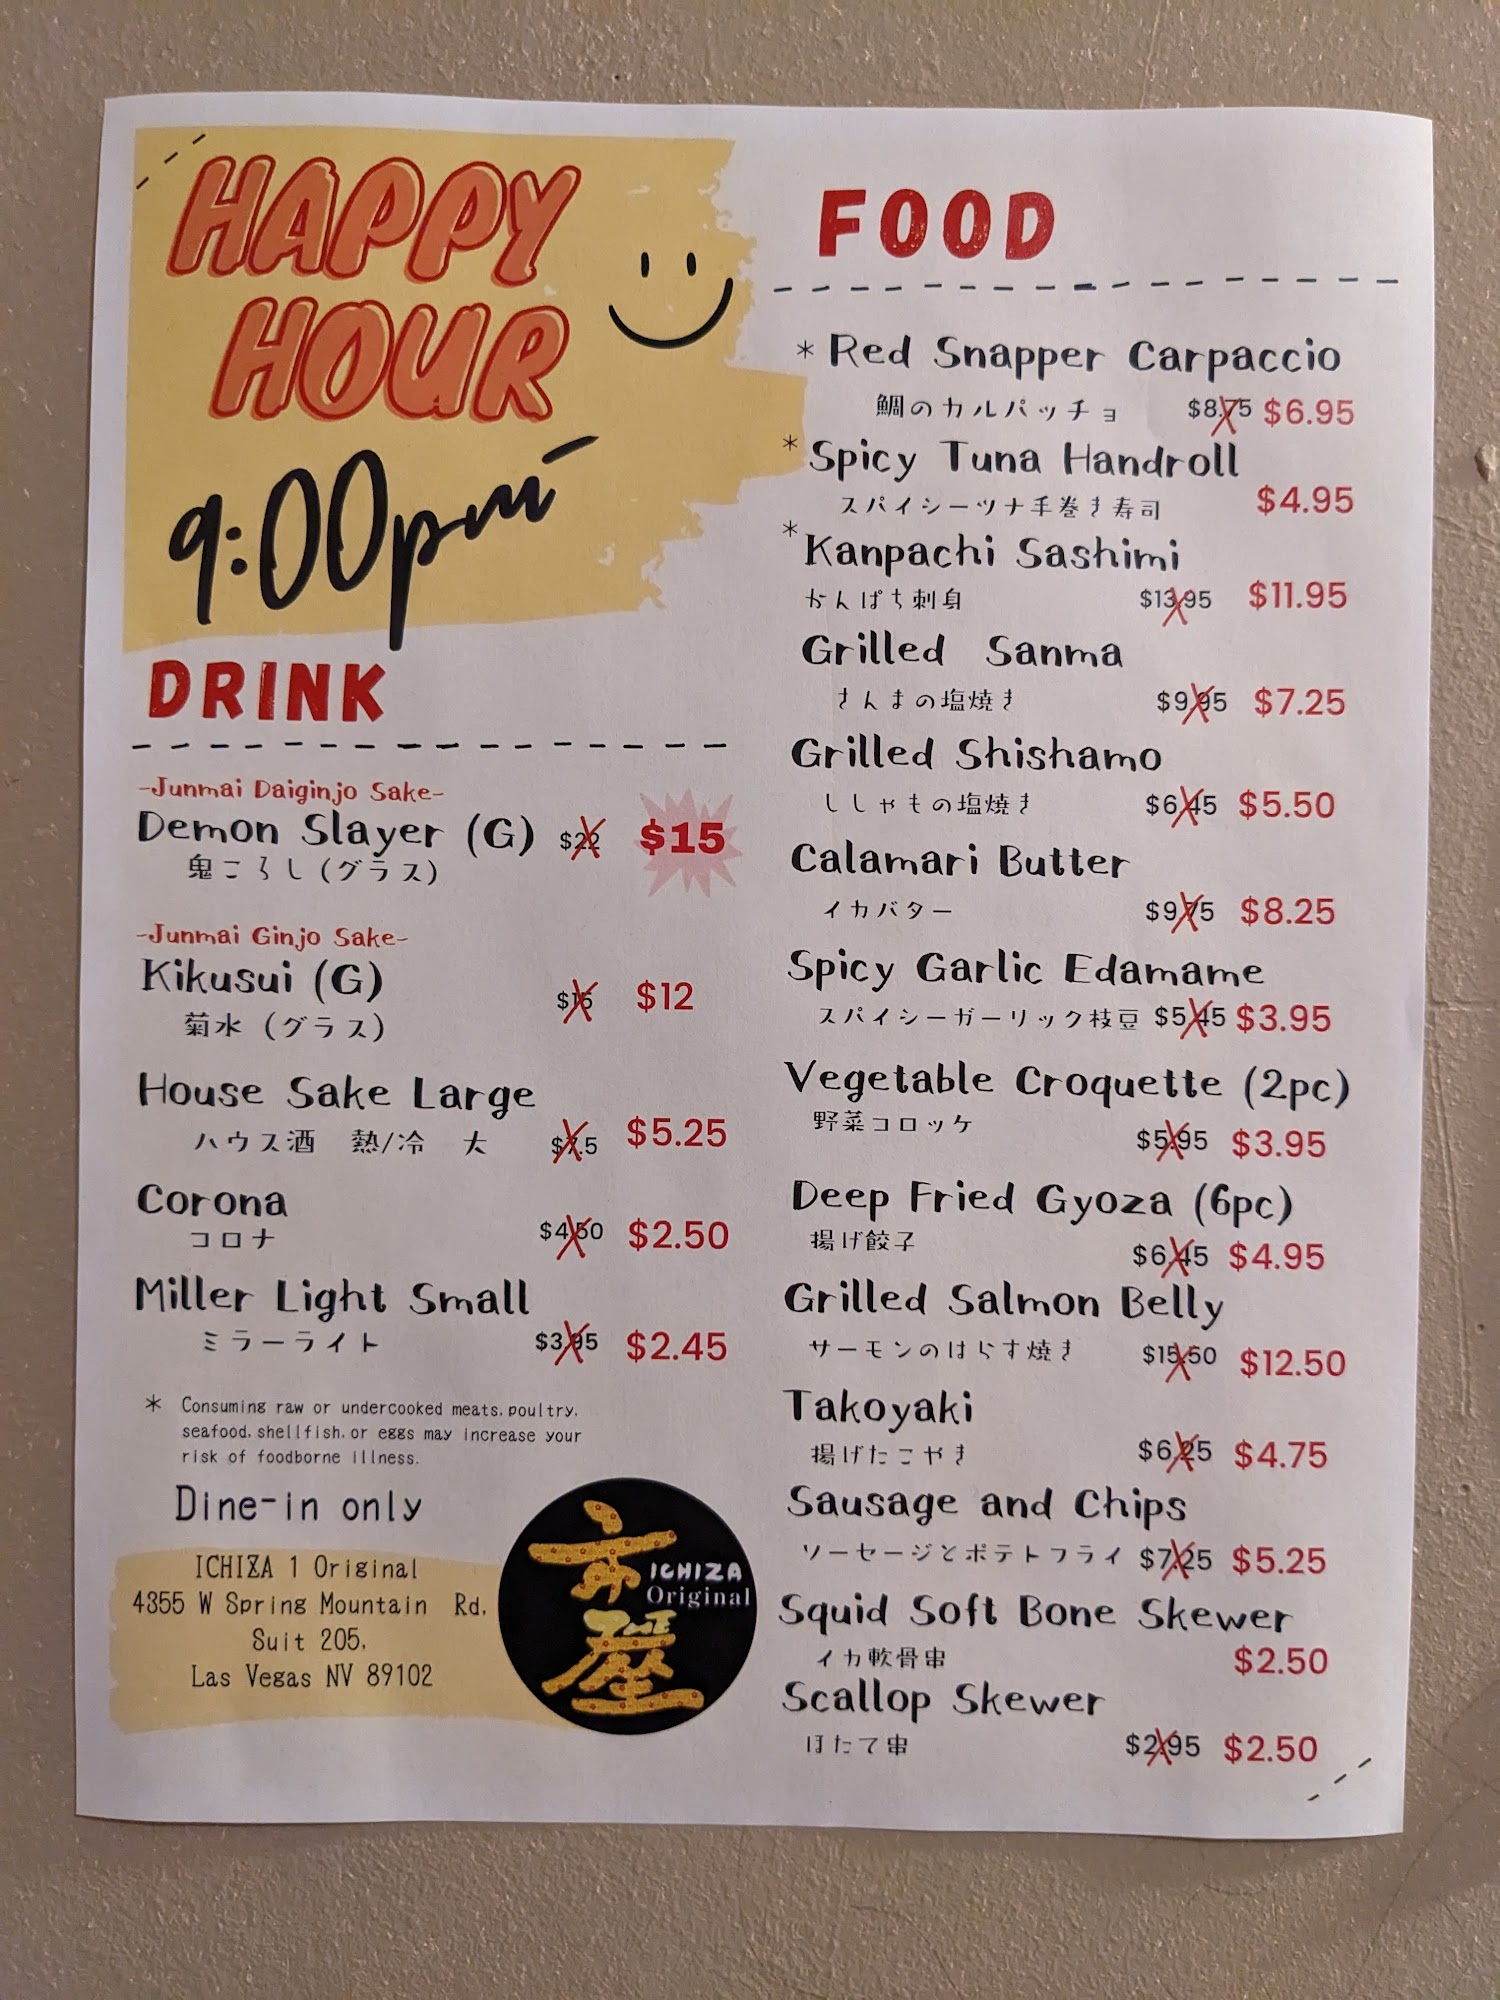 HAPPY
HOUR
9:00pm-
DRINK
-Junmai Daiginjo Sake-
Demon Slayer (G) $22 $15
鬼ころし(グラス)
-Junmai Ginjo Sake-
Kikusui (G)
$16 $12
菊水 (グラス)
House Sake Large
ハウス酒 熱/冷 大 $7.5 $5.25
Corona
コロナ $4.50 $2.50
Miller Light Small
ミラーライト $3.95 $2.45
* Consuming raw or undercooked meats, poultry,
seafood, shellfish, or eggs may increase your
risk of foodborne illness.
Dine-in only
ICHIZA 1 Original
4355 W Spring Mountain Rd,
Suit 205,
Las Vegas NV 89102
ICHIZA
Original
THE
FOOD
* Red Snapper Carpaccio
鯛のカルパッチョ $8.75 $6.95
* Spicy Tuna Handroll
スパイシーツナ手巻き寿司 $4.95
* Kanpachi Sashimi
かんぱち刺身 $13.95 $11.95
Grilled Sanma
さんまの塩焼き $9.95 $7.25
Grilled Shishamo
ししゃもの塩焼き $6.45 $5.50
Calamari Butter
イカバター $9.75 $8.25
Spicy Garlic Edamame
スパイシーガーリック枝豆 $5.45 $3.95
Vegetable Croquette (2pc)
野菜コロッケ $5.95 $3.95
Deep Fried Gyoza (6pc)
揚げ餃子 $6.45 $4.95
Grilled Salmon Belly
サーモンのはらす焼き $15.50 $12.50
Takoyaki
揚げたこやき $6.25 $4.75
Sausage and Chips
ソーセージとポテトフライ $7.25 $5.25
Squid Soft Bone Skewer
イカ軟骨串 $2.50
Scallop Skewer
ほたて串 $2.95 $2.50